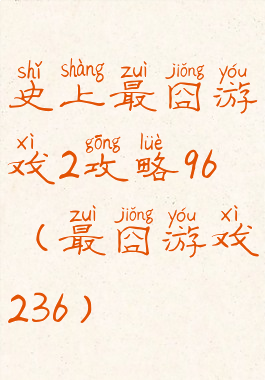 shǐ shàng zuì jiǒng yóu
史上最囧游
xì gōng lüè
戏2攻略96
zuì jiǒng yóu xì
（最囧游戏
236）